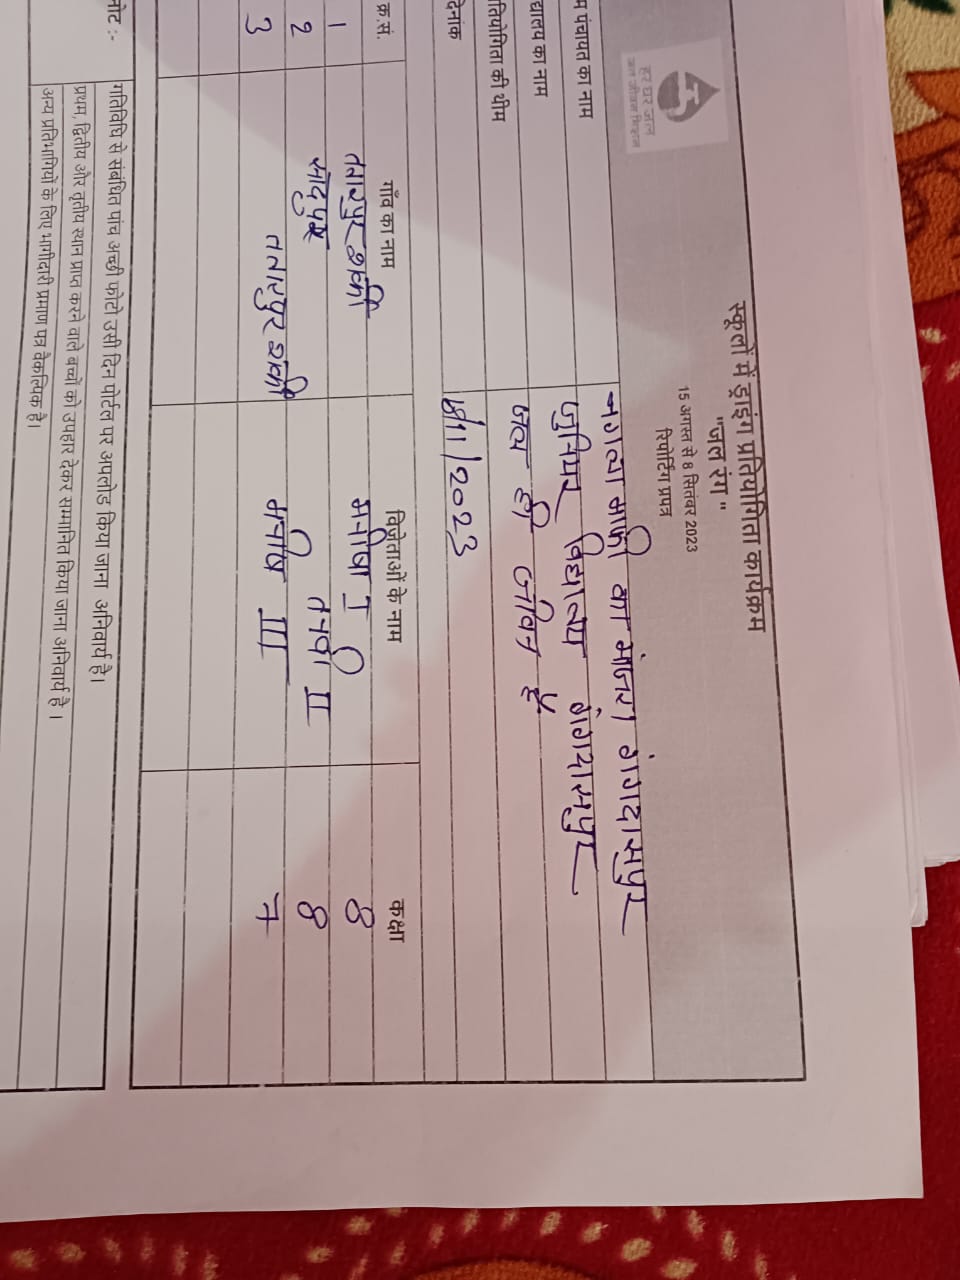 स्कूलों में ड्राइंग प्रतियोगिता कार्यक्रम
"जल रंग"
15 अगस्त से 8 सितंबर 2023
रिपोर्टिंग प्रपत्र
हर घर जल
जल जीवन मिशन
म पंचायत का नाम नगला माफी का मंजरा गंगदासपुर
द्यालय का नाम जुनियर विद्यालय गंगदासपुर
तियोगिता की थीम जल ही जीवन है
देनांक /2023
क्र.सं. गाँव का नाम विजेताओं के नाम कक्षा
1 ततारपुर मनीषा I 8
2 II 8
3 ततारपुर III 7
नोट :- गतिविधि से संबंधित पांच अच्छी फोटो उसी दिन पोर्टल पर अपलोड किया जाना अनिवार्य है।
प्रथम, द्वितीय और तृतीय स्थान प्राप्त करने वाले बच्चों को उपहार देकर सम्मानित किया जाना अनिवार्य है ।
अन्य प्रतिभागियों के लिए भागीदारी प्रमाण पत्र वैकल्पिक है।